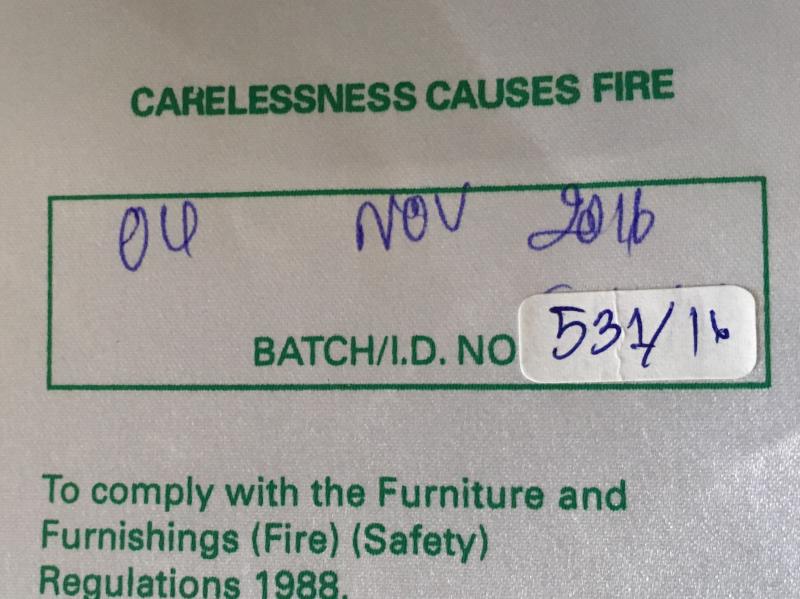 CARELESSNESS CAUSES FIRE
04 NOV 2016
BATCH/I.D. NO 531/16
To comply with the Furniture and
Furnishings (Fire) (Safety)
Regulations 1988.